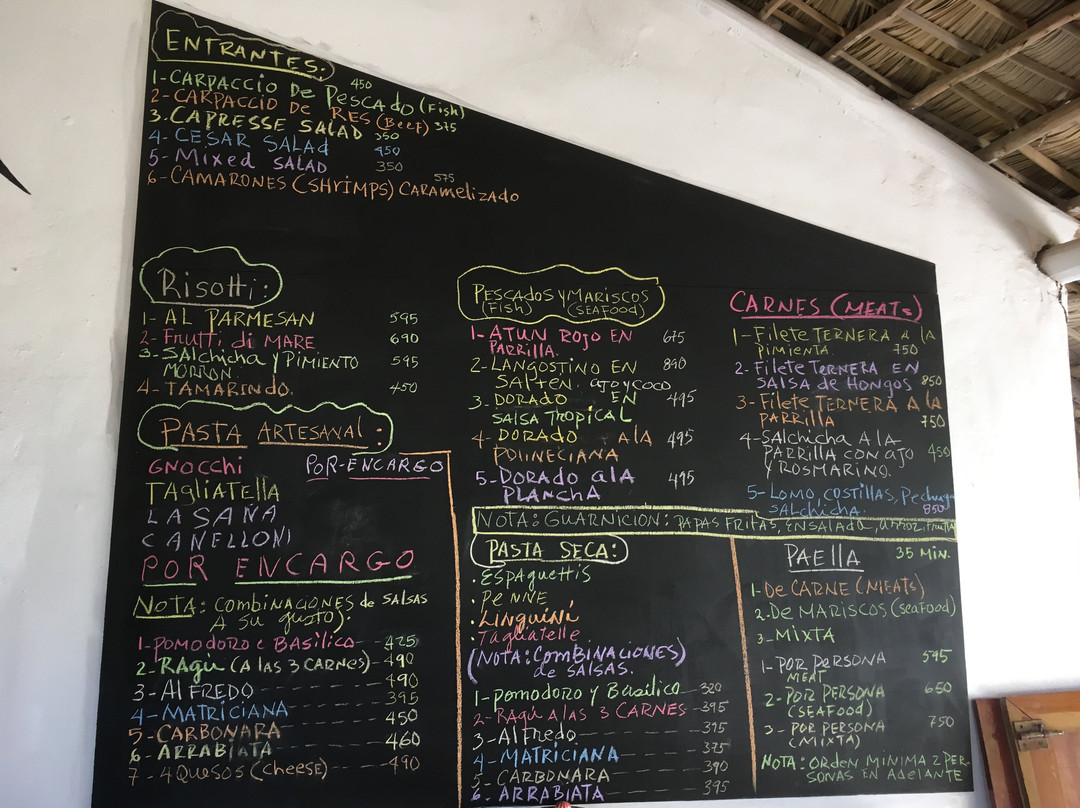 ENTRANTES:
1-CARPACCIO De Pescado (Fish) 450
2-CARPACCIO DE RES (Beef) 375
3.CAPRESSE SALAD 350
4-CESAR SALAd 450
5-Mixed SALAD 350
6-CAMARONES (SHrimps) CARAmelizado 575
Risotti:
1-AL PARMESAN 595
2-Frutti di MARE 690
3-SAlchicha y PiMIENTO 595
MORRON.
4-TAMARINDO. 450
PASTA ARTESANAL:
GNOCCHI POR-ENCARGO
TAGliATEllA
LASAÑA
CANELLONI
POR ENCARGO
NOTA: COMBINACIONES de SALSAS
A su gusto):
1-POMODORO e BASILICO---425
2-RAGÚ (A las 3 CARNES)-490
3-AlFREDO------490
4-MATRICIANA------395
5-CARBONARA------450
6-ARRABIATA------460
7-4 QUESOS (cheese)------490
PESCADOS y MARISCOS
(FISH) (SEAFOOD)
1-ATUN ROJO EN 675
PARRILLA.
2-LANGOSTINO EN 890
SALTEN. AJO y COCO
3-DORADO EN 495
SALSA TROPICAL
4-DORADO A LA 495
POLINECIANA
5-DORADO ALA 495
PLANCHA
CARNES (MEATs)
1-Filete TERNERA A lA
PIMIENTA. 750
2-Filete TERNERA EN
SALSA de HONGOS 850
3-Filete TERNERA A lA
PARRILLA 750
4-SALCHICHA A LA
PARRILLA CON AJO 450
Y ROSMARINO.
5-LOMO, COSTILLAS, Pechuga
SALCHICHA. 850
NOTA: GUARNICION: PAPAS FRITAS, ENSALADA,
PASTA SECA:
.ESPAGuettis
.PENNE
.LINguiNi
.TAgliAtelle
(NOTA: COMBINACIONES)
de SALSAS.
1-POMODORO y BASilico---320
2-RAGÚ A LAS 3 CARNES--395
3-Alfredo------375
4-MATRICIANA------375
5-CARBONARA------390
6-ARRABIATA------395
PAELLA 35 MIN.
1-De CARNE (MEATs)
2.De MARISCOS (SeaFood)
3-MIXTA
1-POR PERSONA 595
MEAT
2-POR PERSONA 650
(SEAFOOD)
3-POR PERSONA 750
(MIXTA)
NOTA: ORDEN MINIMA 2 PER-
SONAS EN AdelANTE